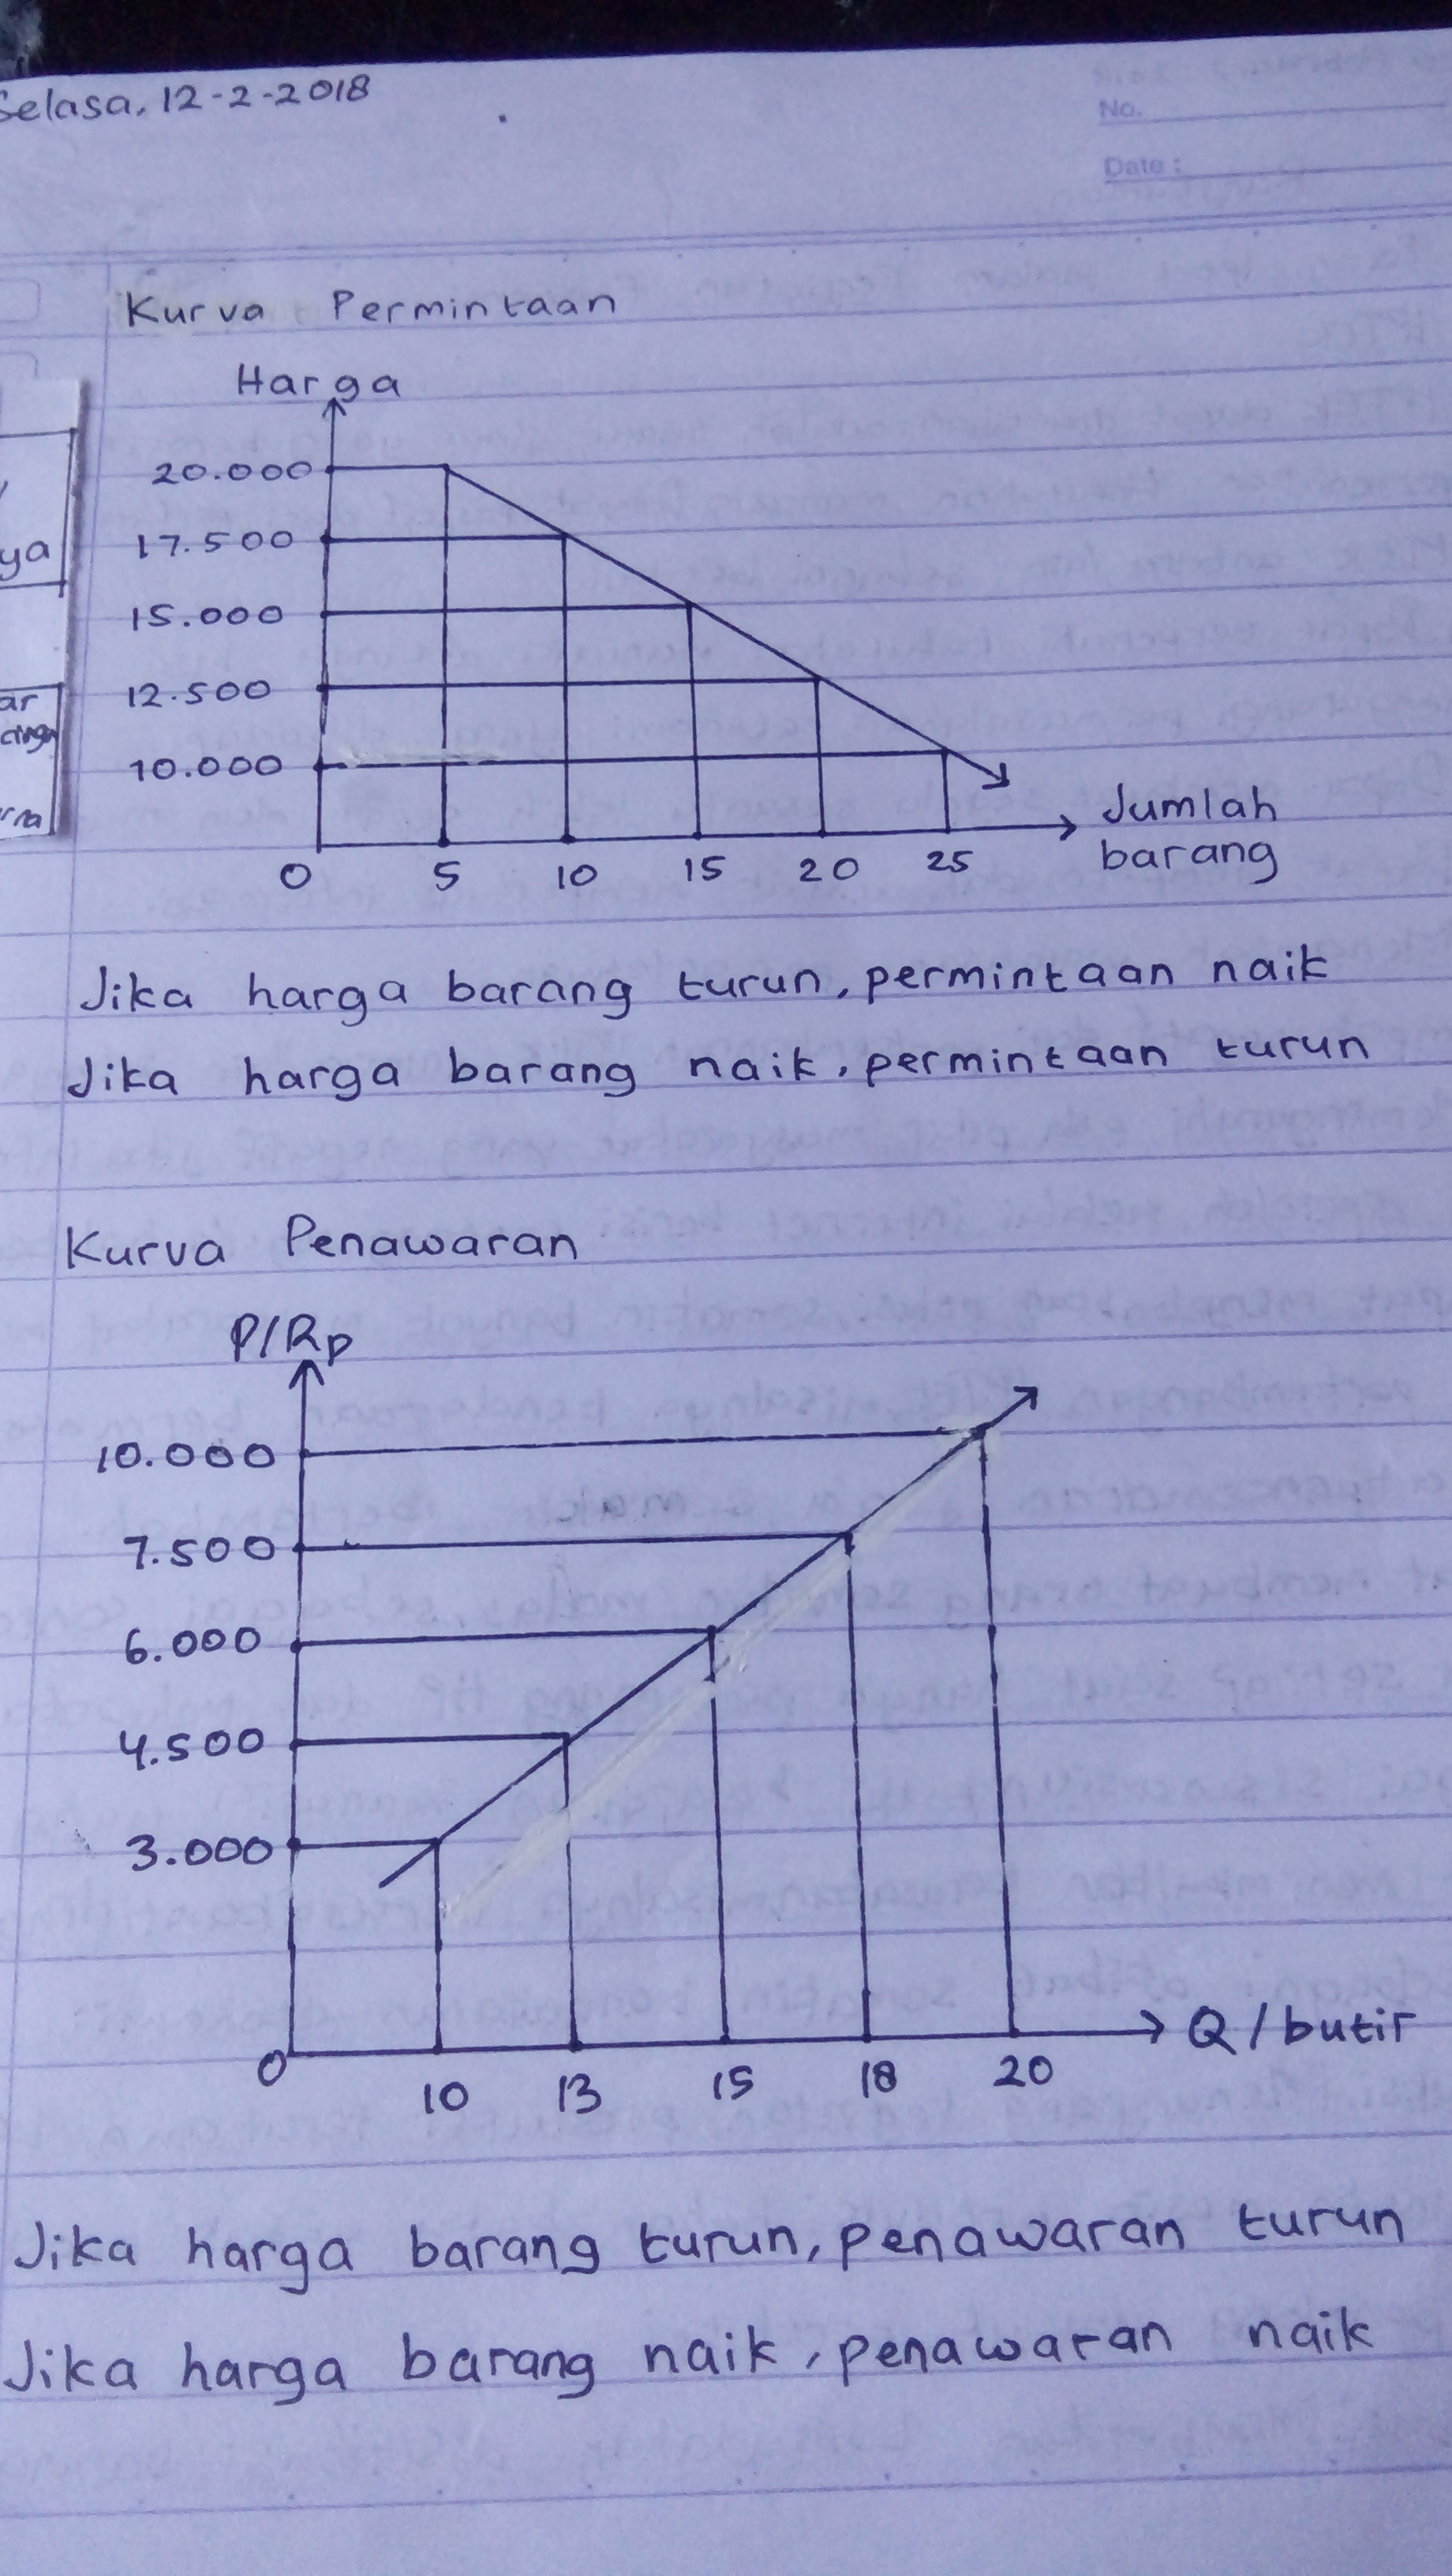 Selasa, 12-2-2018
No.
Date :
Kurva Permintaan
Harga
20.000
17.500
15.000
12.500
10.000
0 5 10 15 20 25
Jumlah
barang
ya
ar
Jika harga barang turun, permintaan naik
Jika harga barang naik, permintaan turun
Kurva Penawaran
P/Rp
10.000
7.500
6.000
4.500
3.000
0 10 13 15 18 20
Q/butir
Jika harga barang turun, penawaran turun
Jika harga barang naik, penawaran naik